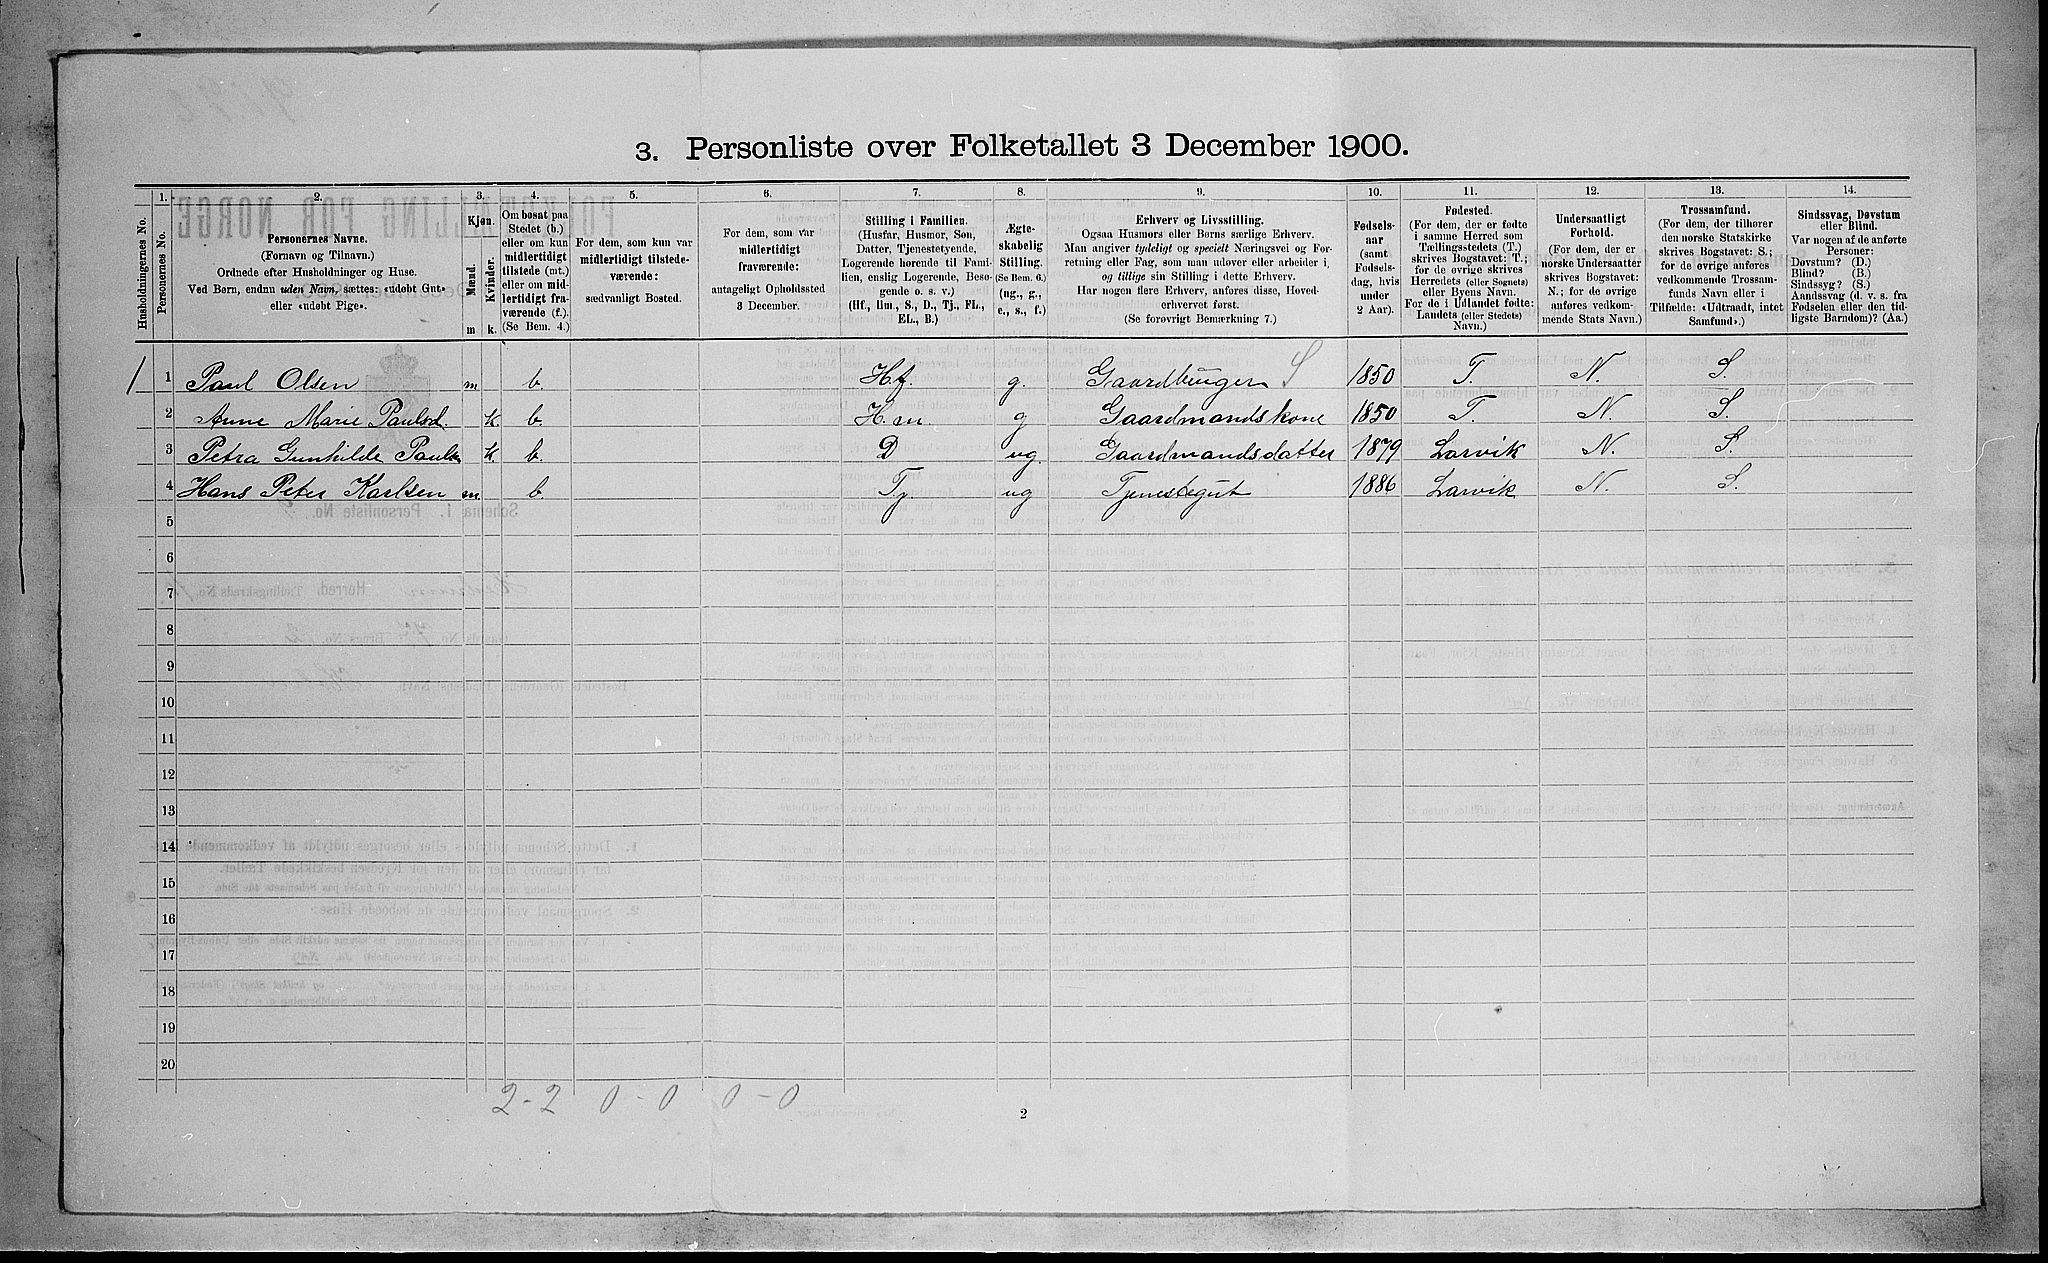 3. Personliste over Folketallet 3 December 1900.
Husholdningernes No.
1.
Personernes No.
2.
Personernes Navne.
(Fornavn og Tilnavn.)
Ordnede efter Husholdninger og Huse.
Ved Børn, endnu uden Navn, sættes: «udøbt Gut»
eller «udøbt Pige».
3.
Kjøn.
Mænd.
Kvinder.
m k.
4.
Om bosat paa
Stedet (b.)
eller om kun
midlertidigt
tilstede (mt.)
eller om mid-
lertidigt fra-
værende (f.).
(Se Bem. 4.)
5.
For dem, som kun var
midlertidigt tilstede-
værende:
sædvanligt Bosted.
6.
For dem, som var
midlertidigt
fraværende:
antageligt Opholdssted
3 December.
7.
Stilling i Familien.
(Husfar, Husmor, Søn,
Datter, Tjenestetyende,
Logerende hørende til Fami-
lien, enslig Logerende, Besø-
gende o. s. v.)
(Hf., Hm., S., D., Tj., FL.,
EL., B.)
8.
Ægte-
skabelig
Stilling.
(Se Bem. 6.)
(ug., g.,
e., s., f.)
9.
Erhverv og Livsstilling.
Ogsaa Husmors eller Børns særlige Erhverv.
Man angiver tydeligt og specielt Næringsvei og For-
retning eller Fag, som man udøver eller arbeider i,
og tillige sin Stilling i dette Erhverv.
Har nogen flere Erhverv, anføres disse, Hoved-
erhvervet først.
(Se forøvrigt Bemærkning 7.)
10.
Fødsels-
aar
(samt
Fødsels-
dag, hvis
under
2 Aar).
11.
Fødested.
(For dem, der er fødte
i samme Herred som
Tællingsstedets (T.)
skrives Bogstavet: T.;
for de øvrige skrives
Herredets (eller Sognets)
eller Byens Navn.
For de i Udlandet fødte:
Landets (eller Stedets)
Navn.)
12.
Undersaatligt
Forhold.
(For dem, der er
norske Undersaatter
skrives Bogstavet:
N.; for de øvrige
anføres vedkom-
mende Stats Navn.)
13.
Trossamfund.
(For dem, der tilhører
den norske Statskirke
skrives Bogstavet: S.;
for de øvrige anføres
vedkommende Trossam-
funds Navn eller i
Tilfælde: «Udtraadt, intet
Samfund».)
14.
Sindssvag, Døvstum
eller Blind.
Var nogen af de anførte
Personer:
Døvstum? (D.)
Blind? (B.)
Sindssyg? (S.)
Aandssvag (d. v. s. fra
Fødselen eller den tid-
ligste Barndom)? (Aa.)
1 1 Paul Olsen m. b. Hf. g. Gaardbruger S 1850 T. N. S.
2 Anne Marie Paulsd. k. b. H.m. g Gaardmandskone 1850 T. N. S.
3 Petra Gunhilde Pauls k. b. D ug. Gaardmandsdatter 1879 Larvik N. S.
4 Hans Peter Karlsen m. b Tj. ug Tjenestegut 1886 Larvik N. S.
5
6
7
8
9
10
11
12
13
14
15
16
17
18
19
20
2-2 0-0 0-0
2